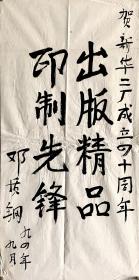 贺新华二厂成立四十周年
出版精品
印制先锋
邓
九四年
九月